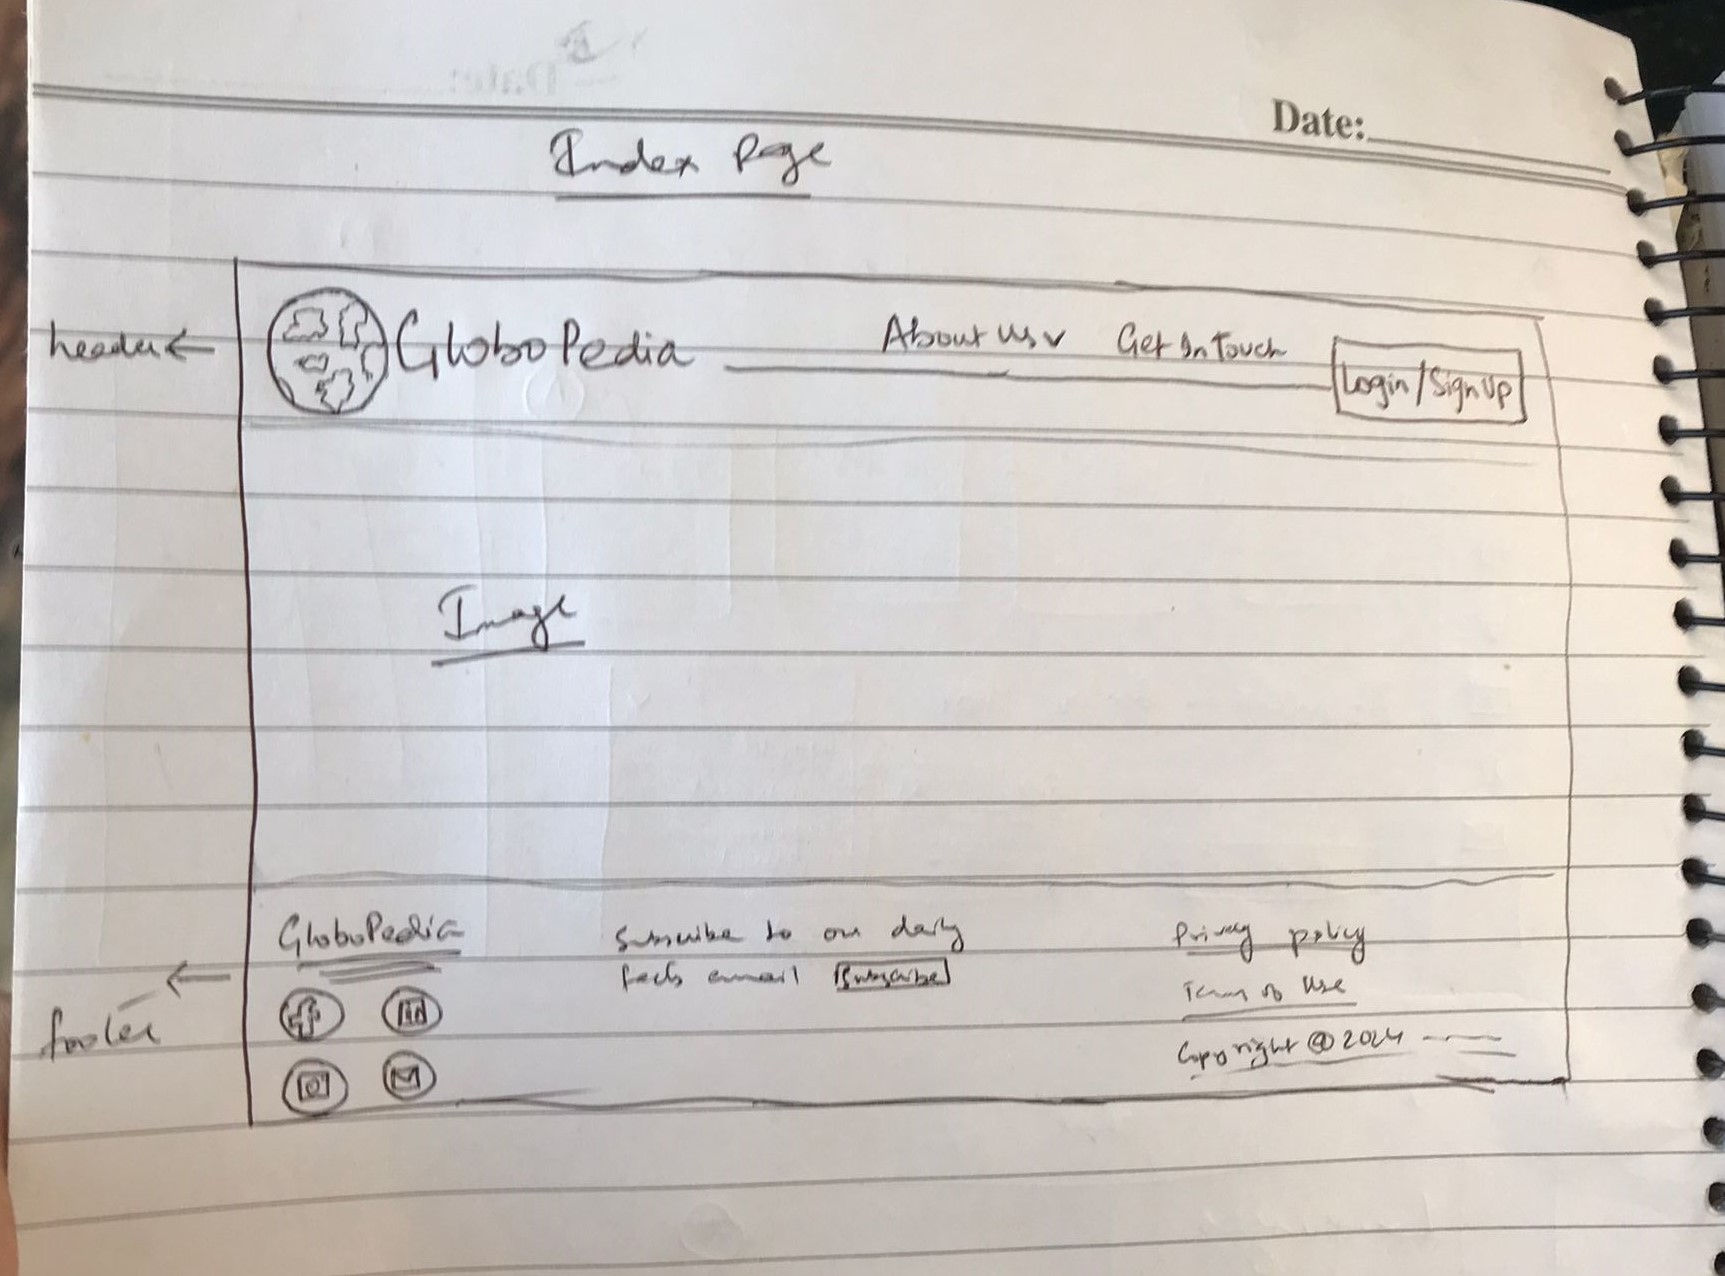 Date:
Index Page
header
GloboPedia
About Us
Get In Touch
Login/SignUp
Image
footer
GloboPedia
Subscribe to our daily
facts email Subscribe
Privacy policy
Terms of Use
Copyright @ 2024
f
in